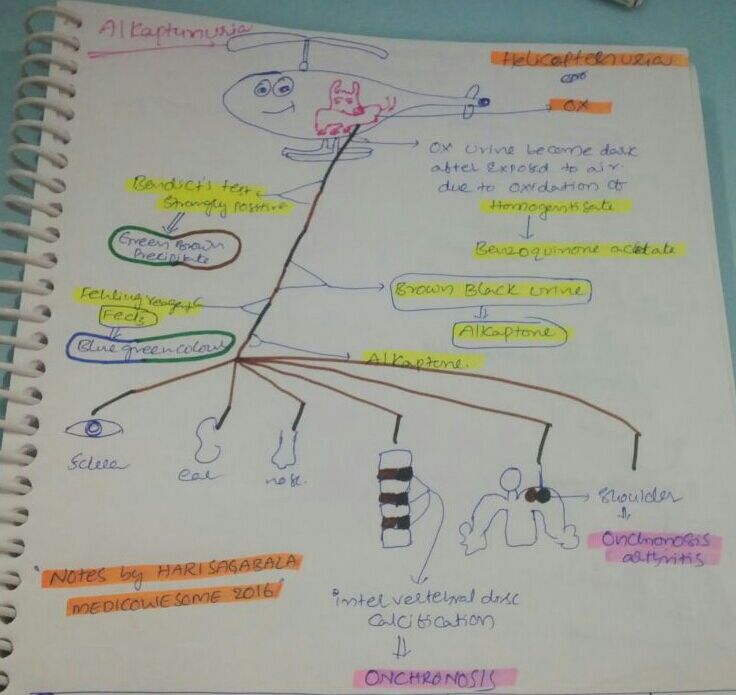 Alkaptunuria
Helicoptonuria
OX
OX urine become dark
after exposed to air
due to oxidation of
Homogentisate
Benzoquinone acetate
Benedict's test
Strongly positive
Green Brown
Precipitate
Brown Black urine
Alkaptone
Fehling reagent
Fecl3
Blue green colour
Alkaptone.
Sclera
Ear
nose.
shoulder
Onchronosis
arthritis
"Notes by HARI SAGABALA
MEDICOWESOME 2016"
inter vertebral disc
calcification
ONCHRONOSIS